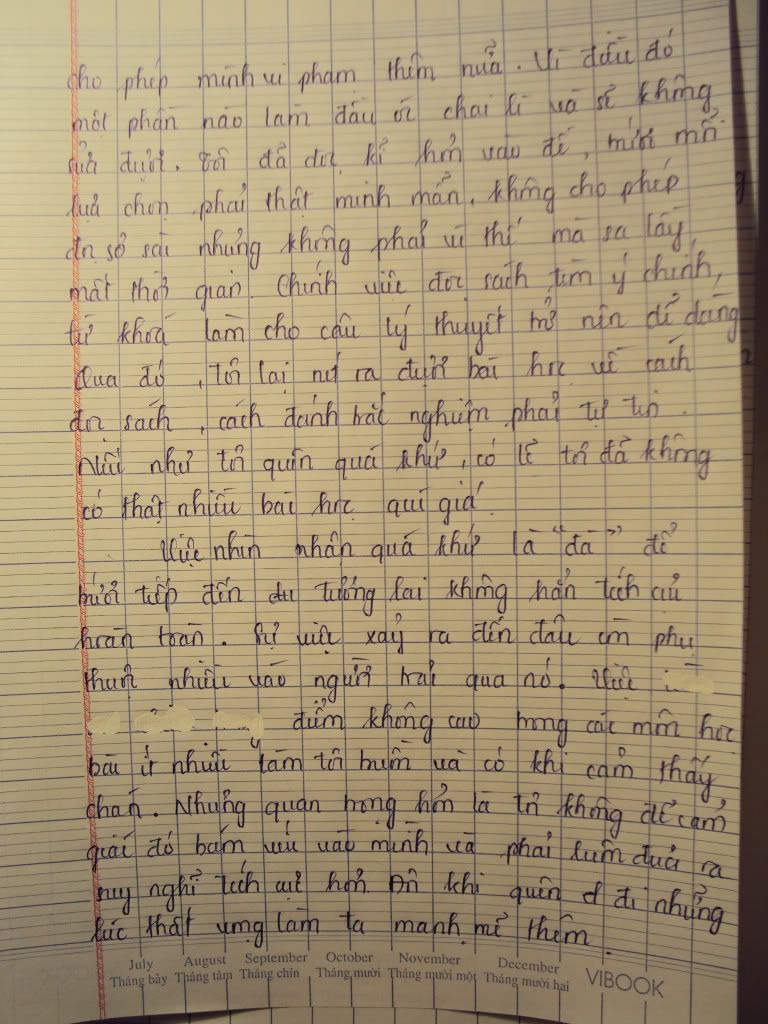 cho phép mình vi phạm thêm nữa. Vì điều đó
một phần nào làm đầu óc chai lì và sẽ không
sửa được. Tôi đã đọc kĩ hơn vào đề, mỗi
lựa chọn phải thật minh mẫn, không cho phép
đọc sơ sài nhưng không phải vì thế mà sa lầy,
mất thời gian. Chính việc đọc sách, tìm ý chính,
từ khoá làm cho câu lý thuyết trở nên dễ dàng
Qua đó, tôi lại rút ra được bài học về cách
đọc sách, cách đánh trắc nghiệm phải tự tin.
Nếu như tôi quên quá khứ, có lẽ tôi đã không
có thật nhiều bài học quí giá.
Việc nhìn nhận quá khứ là "đà" để
bước tiếp đến tương lai không hẳn tích cực
hoàn toàn. Sự việc xảy ra đến đâu còn phụ
thuộc nhiều vào người trải qua nó. Việc
điểm không cao trong các môn học
bài ít nhiều làm tôi buồn và có khi cảm thấy
chán. Nhưng quan trọng hơn là tôi không để cảm
giác đó bám víu vào mình và phải luôn đưa ra
suy nghĩ tích cực hơn. Đôi khi quên đi những
lúc thất vọng làm ta mạnh mẽ thêm.
July August September October November December
Tháng bảy Tháng tám Tháng chín Tháng mười Tháng mười một Tháng mười hai
VIBOOK